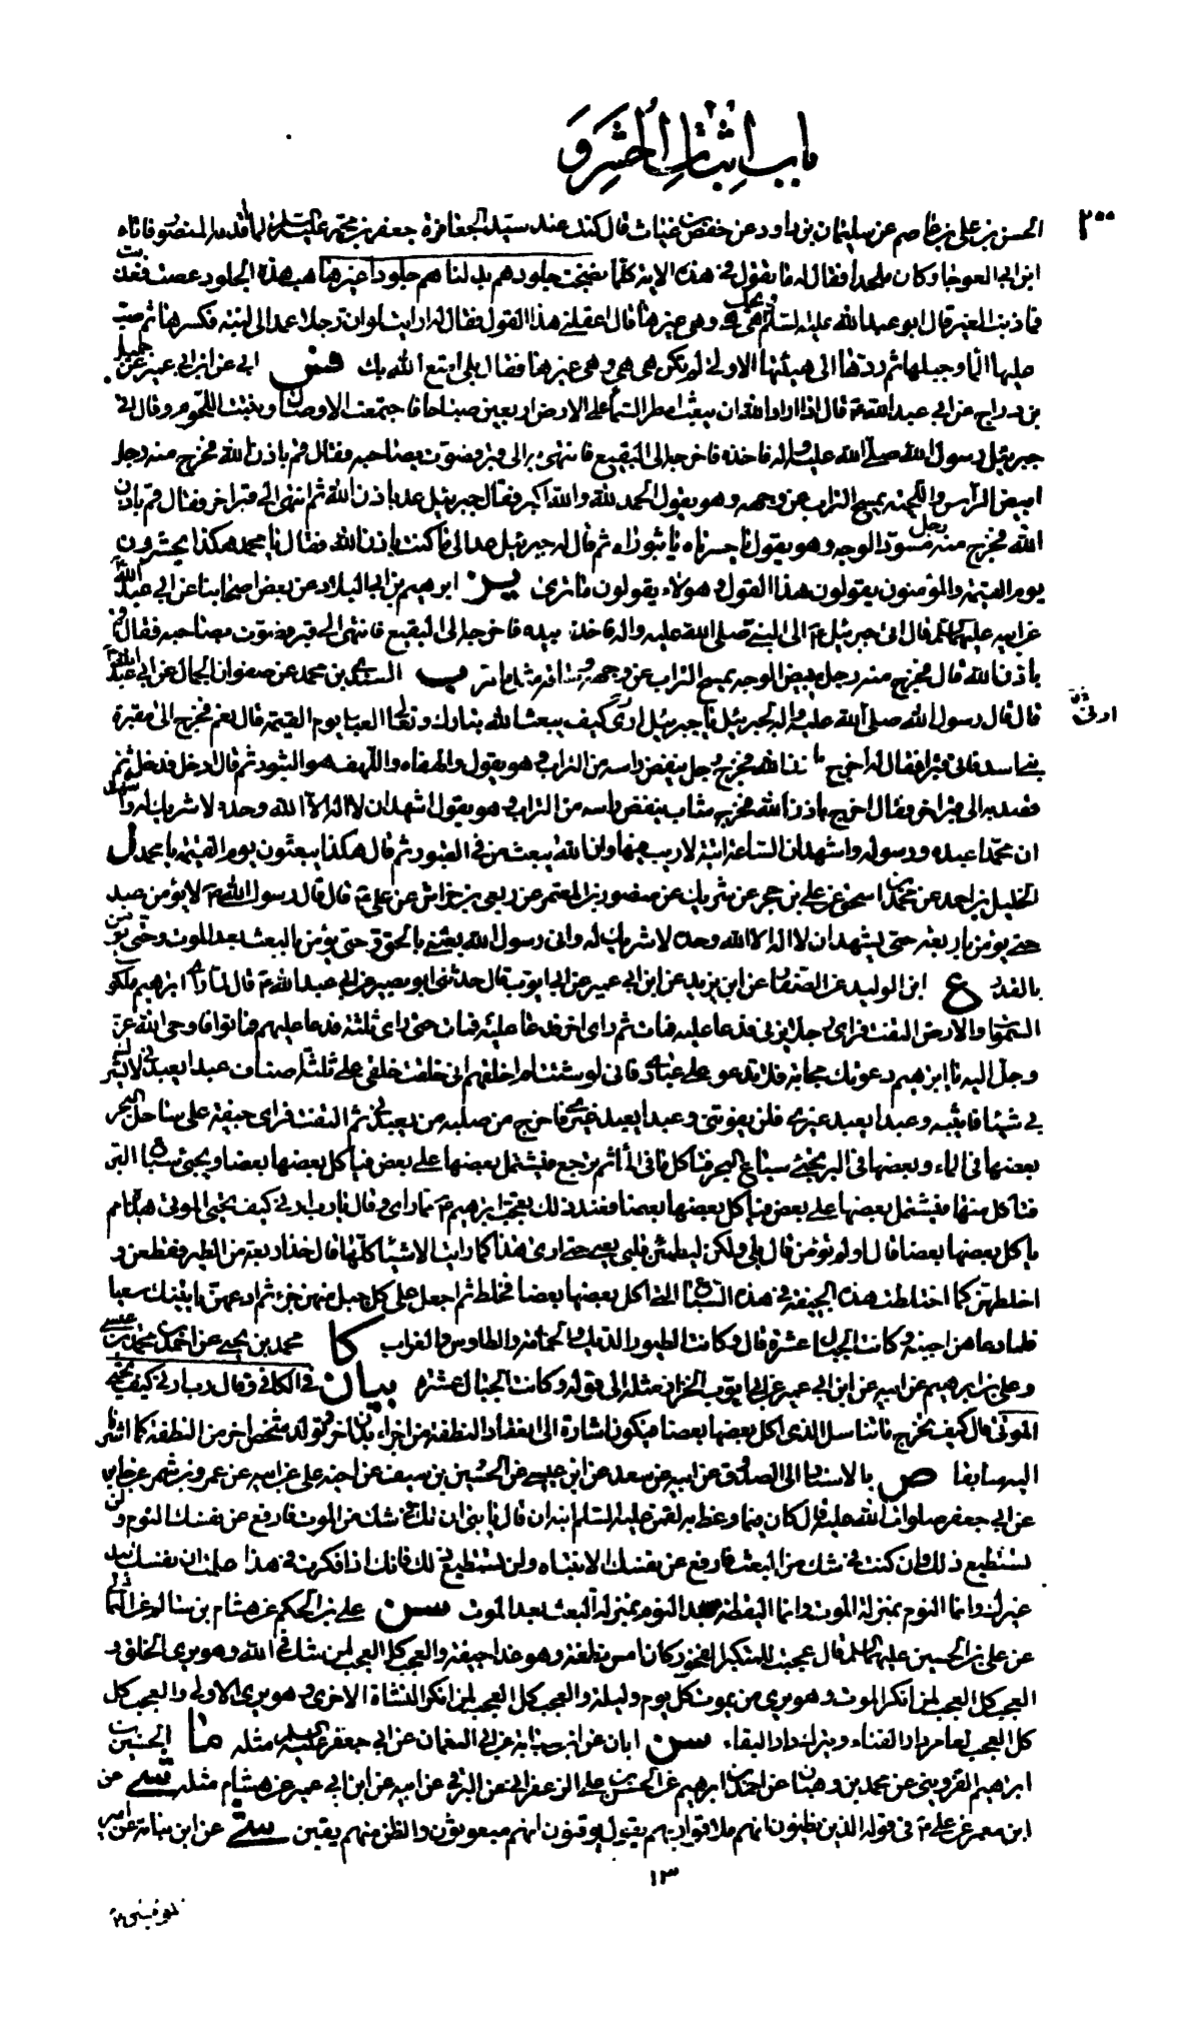 باب إثبات الحشر و
٢٠٠
الحسن بن علي بن عاصم عن سليمان بن داود عن حفص بن غياث قال كنت عند سيد الجعافرة جعفر بن محمد عليه السلم لما اقدمه المنصور فاتاه
ابن ابي العوجا وكان ملحدا فقال له ما يقول في هذه الاية كلما نضجت جلودهم بدلناهم جلودا غيرها هب هذه الجلود عصت فعذبت
فما ذنب الغير قال ابو عبد الله عليه السلم ويحك هي هي وهي غيرها قال اعقلني هذا القول فقال له ارايت لو ان رجلا عمد الى لبنة فكسرها ثم صب
عليها الماء وجبلها ثم ردها الى هيئتها الاولى لم تكن هي هي وهي غيرها فقال بلى امتع الله بك فس ابي عن ابن ابي عمير عن جميل
بن دراج عن ابي عبد الله ع قال اذا اراد الله ان يبعث امطر السماء على الارض اربعين صباحا فاجتمعت الاوصال ونبتت اللحوم وقال اتى
جبرئيل رسول الله صلى الله عليه واله فاخذه فاخرجه الى البقيع فانتهى به الى قبر فصوت بصاحبه فقال قم باذن الله فخرج منه رجل
ابيض الراس واللحية يمسح التراب عن وجهه وهو يقول الحمد لله والله اكبر فقال جبرئيل عد باذن الله ثم انتهى الى قبر اخر فقال قم باذن
الله فخرج منه رجل مسود الوجه وهو يقول يا حسرتاه يا ثبوراه ثم قال له جبرئيل عد الى ما كنت باذن الله فقال يا محمد هكذا يحشرون
يوم القيمة والمؤمنون يقولون هذا القول وهؤلاء يقولون ما ترى ين ابرهيم بن ابي البلاد عن بعض اصحابنا عن ابي عبد الله
عن ابيه عليهما السلم قال اتى جبرئيل ع الى النبي صلى الله عليه واله فاخذ بيده فاخرجه الى البقيع فانتهى الى قبر فصوت بصاحبه فقال قم
باذن الله قال فخرج منه رجل مبيض الوجه يمسح التراب عن وجهه وساقه مثل ما مر ب السندي بن محمد عن صفوان الجمال عن ابي عبد الله
قال قال رسول الله صلى الله عليه واله لجبرئيل يا جبرئيل ارني كيف يبعث الله تبارك وتعالى العباد يوم القيمة قال نعم فخرج الى مقبرة
بني ساعدة فاتى قبرا فقال له اخرج باذن الله فخرج رجل ينفض راسه من التراب وهو يقول والهفاه واللهف هو الثبور ثم قال ادخل فدخل ثم
قصد به الى قبر اخر فقال اخرج باذن الله فخرج شاب ينفض راسه من التراب وهو يقول اشهد ان لا اله الا الله وحده لا شريك له واشهد
ان محمدا عبده ورسوله واشهد ان الساعة اتية لا ريب فيها وان الله يبعث من في القبور ثم قال هكذا يبعثون يوم القيمة يا محمد ل
الخليل بن احمد عن محمد بن اسحق عن علي بن حجر عن شريك عن منصور بن المعتمر عن ربعي بن خراش عن علي ع قال قال رسول الله ص لا يؤمن عبد
حتى يؤمن باربعة حتى يشهد ان لا اله الا الله وحده لا شريك له واني رسول الله بعثني بالحق وحتى يؤمن بالبعث بعد الموت وحتى يؤمن
بالقدر ع ابن الوليد عن الصفار عن ابن يزيد عن ابن ابي عمير عن ابي ايوب قال حدثني ابو بصير عن ابي عبد الله ع قال لما راى ابرهيم ملكوت
السموات والارض التفت فراى رجلا يزني فدعا عليه فمات ثم راى اخر فدعا عليه فمات حتى راى ثلثة فدعا عليهم فماتوا فاوحى الله عز
وجل اليه يا ابرهيم دعوتك مجابة فلا تدعو على عبادي فاني لو شئت لم اخلقهم اني خلقت خلقي على ثلثة اصناف عبدا يعبدني لا يشرك
بي شيئا فاثيبه وعبدا يعبد غيري فلن يفوتني وعبدا يعبد غيري فاخرج من صلبه من يعبدني ثم التفت فراى جيفة على ساحل البحر
بعضها في الماء وبعضها في البر يجئ سباع البحر فتاكل ما في الماء ثم ترجع فيشتمل بعضها على بعض فياكل بعضها بعضا ويجئ سباع البر
فتاكل منها فيشتمل بعضها على بعض فياكل بعضها بعضا فعند ذلك تعجب ابرهيم ع مما راى وقال يا رب ارني كيف تحيي الموتى هذه امم
ياكل بعضها بعضا قال اولم تؤمن قال بلى ولكن ليطمئن قلبي يعني حتى ارى هذا كما رايت الاشياء كلها قال خذ اربعة من الطير فقطعهن و
اخلطهن كما اختلطت هذه الجيفة في هذه السباع التي اكل بعضها بعضا فخلط ثم اجعل على كل جبل منهن جزء ثم ادعهن ياتينك سعيا
فلما دعاهن اجبنه وكانت الجبال عشرة قال وكانت الطيور الديك والحمامة والطاوس والغراب كا محمد بن يحيى عن احمد بن محمد بن عيسى
وعلي بن ابرهيم عن ابيه عن ابن ابي عمير عن ابي ايوب الخزاز مثله الى قوله وكانت الجبال عشرة بيان في الكافي وقال رب ارني كيف تحيي
الموتى قال كيف تخرج ما تناسل الذي اكل بعضها بعضا فيكون اشارة الى انعقاد النطفة من اجزاء بدن اخر وتولد شخص اخر من النطفة كما اشار
اليه سابقا ص بالاسناد الى الصدوق عن ابيه عن سعد عن ابن عيسى عن الحسين بن سيف عن اخيه علي عن ابيه عن عمرو بن شمر عن جابر
عن ابي جعفر صلوات الله عليه قال كان فيما وعظ به لقمن عليه السلم ابنه ان قال يا بني ان تك في شك من الموت فارفع عن نفسك النوم ولن
تستطيع ذلك وان كنت في شك من البعث فارفع عن نفسك الانتباه ولن تستطيع ذلك فانك اذا فكرت في هذا علمت ان نفسك بيد
غيرك وانما النوم بمنزلة الموت وانما اليقظة بعد النوم بمنزلة البعث بعد الموت سن علي بن الحكم عن هشام بن سالم عن الثمالي
عن علي بن الحسين عليهما السلم قال عجبت للمتكبر الفخور كان امس نطفة وهو غدا جيفة والعجب كل العجب لمن شك في الله وهو يرى الخلق و
العجب كل العجب لمن انكر الموت وهو يرى من يموت كل يوم وليلة والعجب كل العجب لمن انكر النشاة الاخرى وهو يرى الاولى والعجب كل
كل العجب لعامر دار الفناء ويترك دار البقاء سن ابان عن ابن سيابة عن ابي النعمان عن ابي جعفر عليه السلم مثله ما الحسين بن
ابراهيم القزويني عن محمد بن وهبان عن احمد بن ابرهيم عن الحسن بن علي الزعفراني عن البرقي عن ابيه عن ابن ابي عمير عن هشام مثله شي عن
ابن معمر عن علي ع في قوله الذين يظنون انهم ملاقوا ربهم يقول يوقنون انهم مبعوثون والظن منهم يقين شي عن ابن نباتة عن امير
١٣
المؤمنين